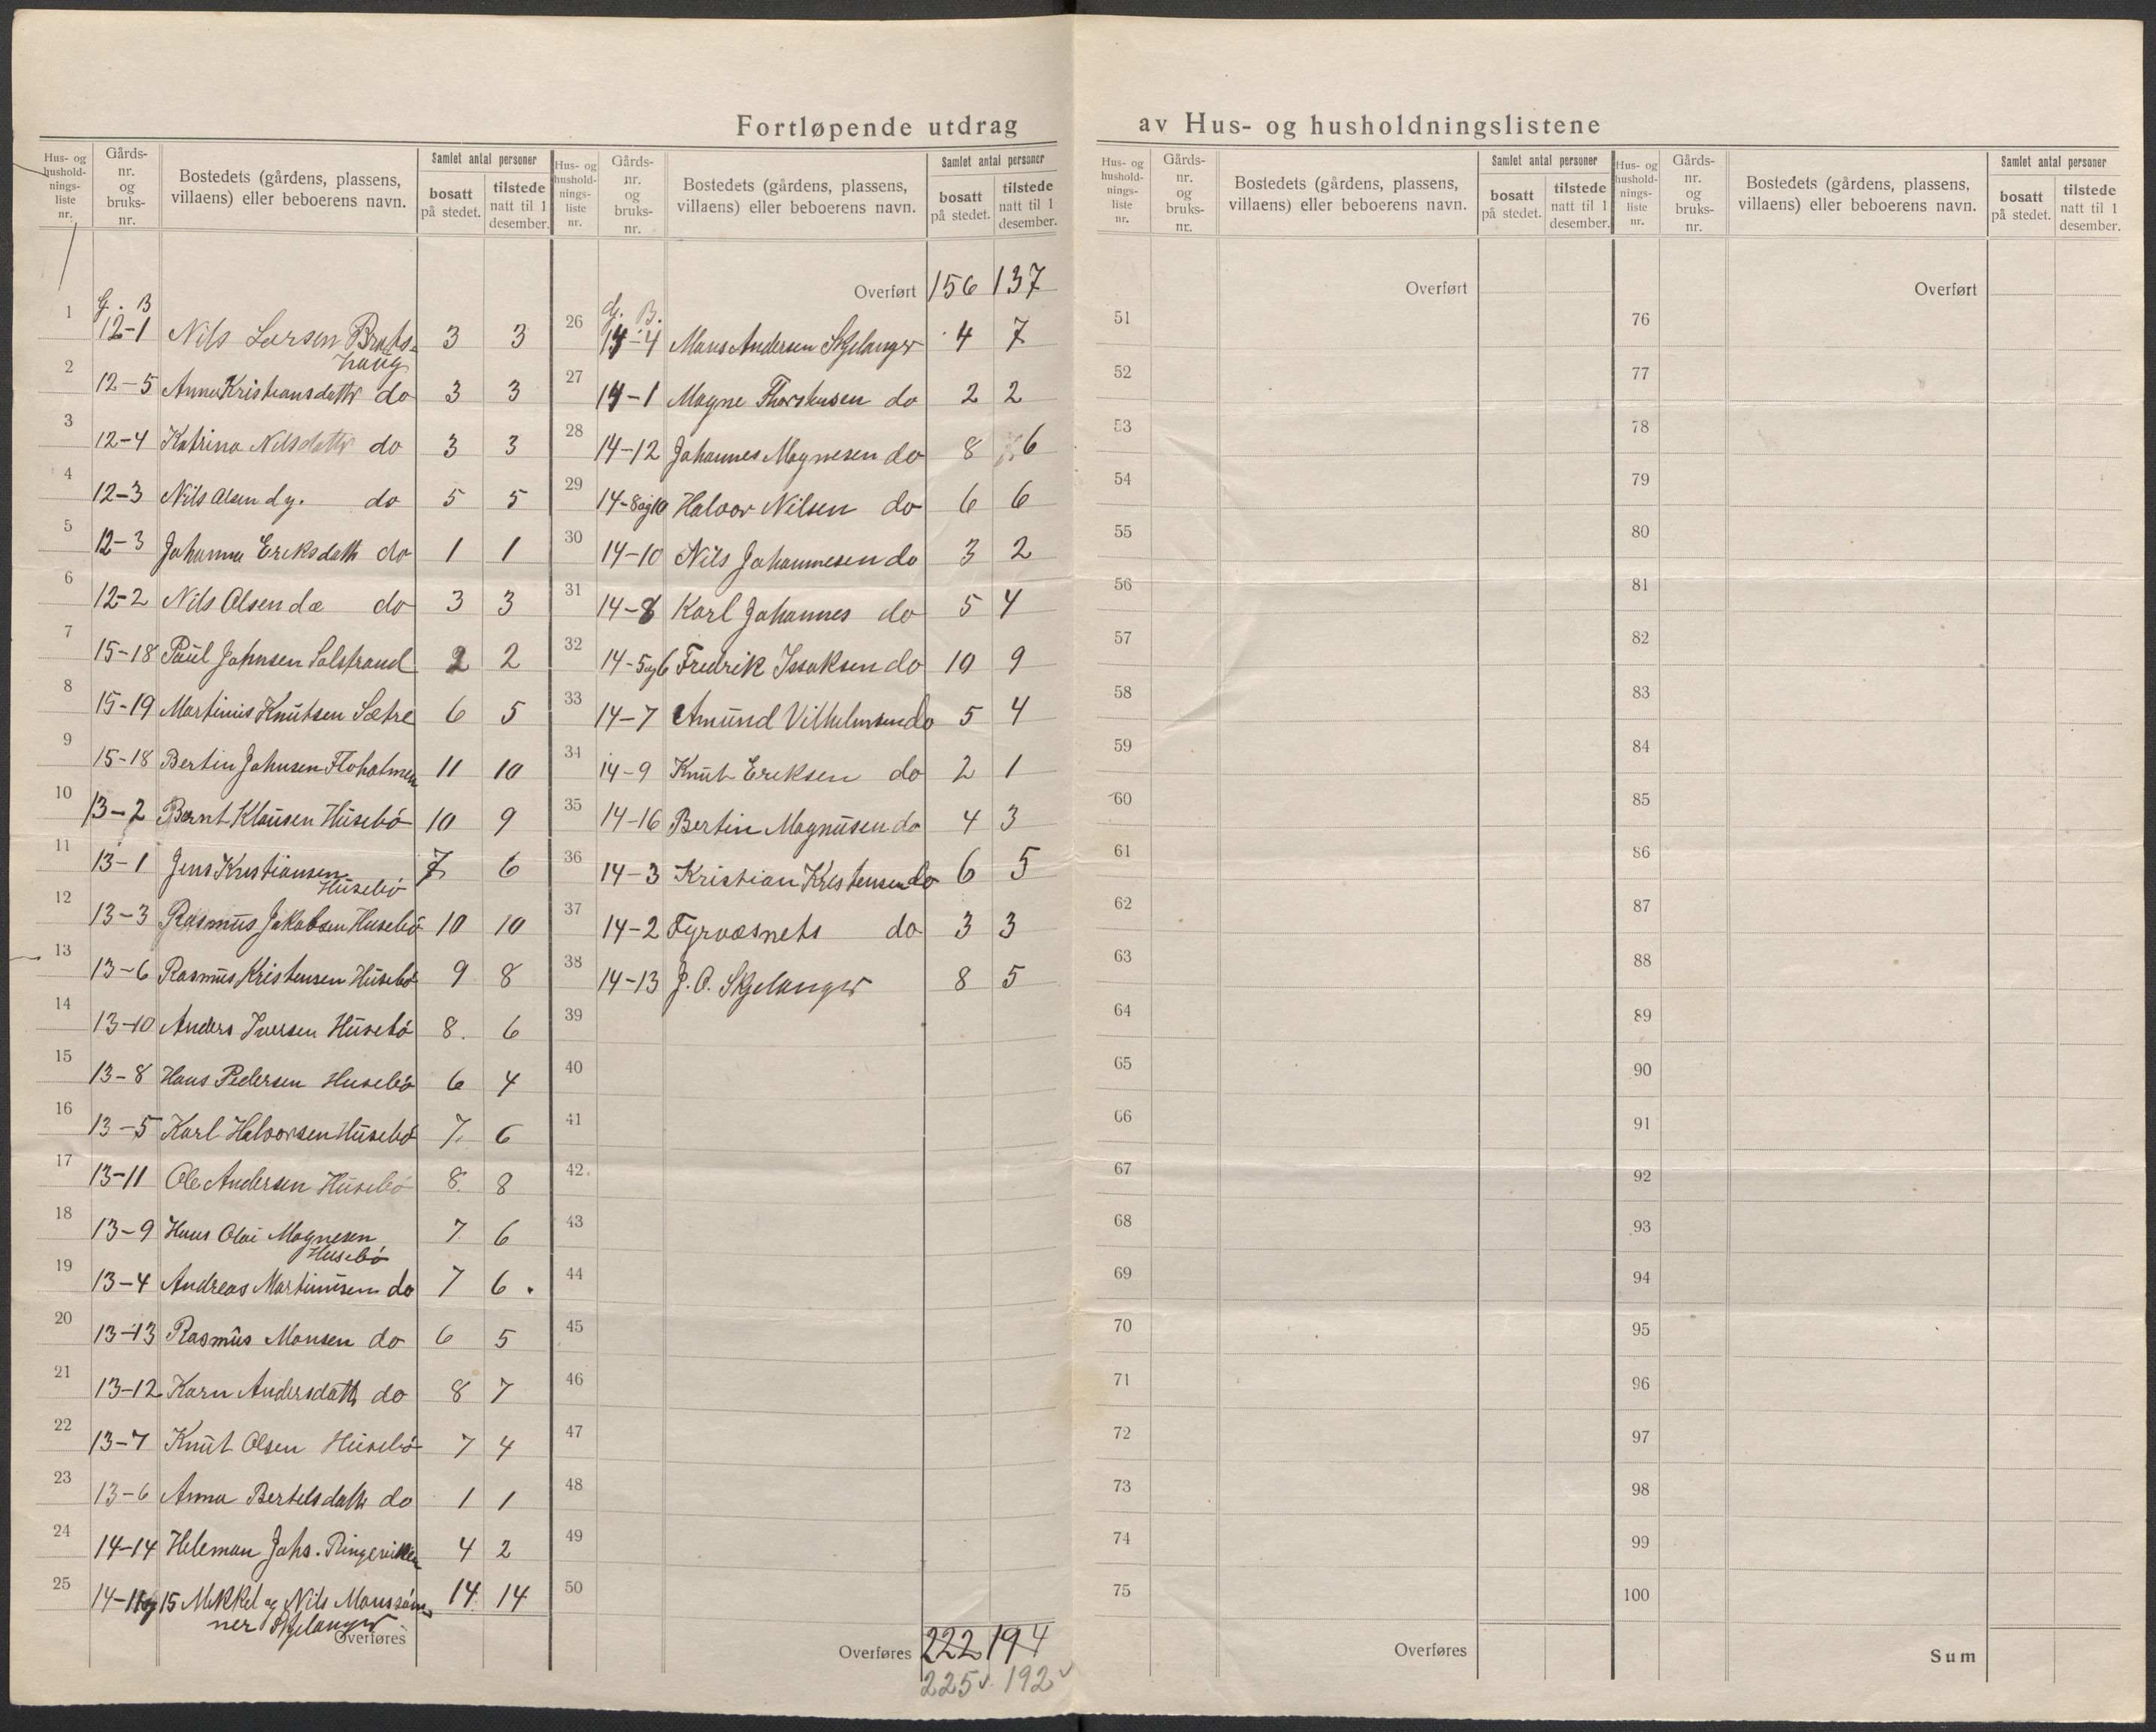 Fortløpende utdrag av Hus- og husholdningslistene
Hus- og husholdnings- liste nr. | Gårds- nr. og bruks- nr. | Bostedets (gårdens, plassens, villaens) eller beboerens navn. | Samlet antal personer | bosatt på stedet. | tilstede natt til 1 desember.
G. B
1 12-1 Nils Larsen Brats- haug 3 3
2 12-5 Anna Kristiansdattr do 3 3
3 12-4 Katrina Nilsdattr do 3 3
4 12-3 Nils Olsen dy. do 5 5
5 12-3 Johanna Eriksdattr do 1 1
6 12-2 Nils Olsen dæ do 3 3
7 15-18 Paul Johnsen Solstrand 2 2
8 15-19 Martinius Knutsen Sætre 6 5
9 15-18 Bertin Johnsen Floholmen 11 10
10 13-2 Bernt Klausen Husebö 10 9
11 13-1 Jens Kristiansen Husebö 7 6
12 13-3 Rasmus Jakobsen Husebö 10 10
13 13-6 Rasmus Kristensen Husebö 9 8
14 13-10 Anders Iversen Husebö 8. 6
15 13-8 Hans Pedersen Husebö 6 4
16 13-5 Karl Halvorsen Husebö 7. 6
17 13-11 Ole Andersen Husebö 8. 8
18 13-9 Hans Olai Magnesen Husebö 7 6
19 13-4 Andreas Martinusen do 7 6.
20 13-13 Rasmus Monsen do 6 5
21 13-12 Karn Andersdattr do 8 7
22 13-7 Knut Olsen Husebö 7 4
23 13-6 Anna Bertelsdattr do 1 1
24 14-14 Heleman Johs. Ringevikken 4 2
25 14-11 og 15 Mikkel og Nils Monssøn- ner Skjelanger 14 14
Overføres
Hus- og husholdnings- liste nr. | Gårds- nr. og bruks- nr. | Bostedets (gårdens, plassens, villaens) eller beboerens navn. | Samlet antal personer | bosatt på stedet. | tilstede natt til 1 desember.
Overført 156 137
G. B.
26 14-4 Mons Andersen Skjelanger 4 7
27 14-1 Magne Thorstensen do 2 2
28 14-12 Johannes Magnesen do 8 6
29 14-8og10 Halvor Nilsen do 6 6
30 14-10 Nils Johannesen do 3 2
31 14-8 Karl Johannes do 5 4
32 14-5og6 Fredrik Issaksen do 10 9
33 14-7 Amund Vilhelmsen do 5 4
34 14-9 Knut Eriksen do 2 1
35 14-16 Bertin Magnusen do 4 3
36 14-3 Kristian Kristensen do 6 5
37 14-2 Fyrvæsnets do 3 3
38 14-13 J. O. Skjelanger 8 5
39
40
41
42
43
44
45
46
47
48
49
50
Overføres 222 194
225 192
Hus- og husholdnings- liste nr. | Gårds- nr. og bruks- nr. | Bostedets (gårdens, plassens, villaens) eller beboerens navn. | Samlet antal personer | bosatt på stedet. | tilstede natt til 1 desember.
Overført
51
52
53
54
55
56
57
58
59
60
61
62
63
64
65
66
67
68
69
70
71
72
73
74
75
Overføres
Hus- og husholdnings- liste nr. | Gårds- nr. og bruks- nr. | Bostedets (gårdens, plassens, villaens) eller beboerens navn. | Samlet antal personer | bosatt på stedet. | tilstede natt til 1 desember.
Overført
76
77
78
79
80
81
82
83
84
85
86
87
88
89
90
91
92
93
94
95
96
97
98
99
100
Sum